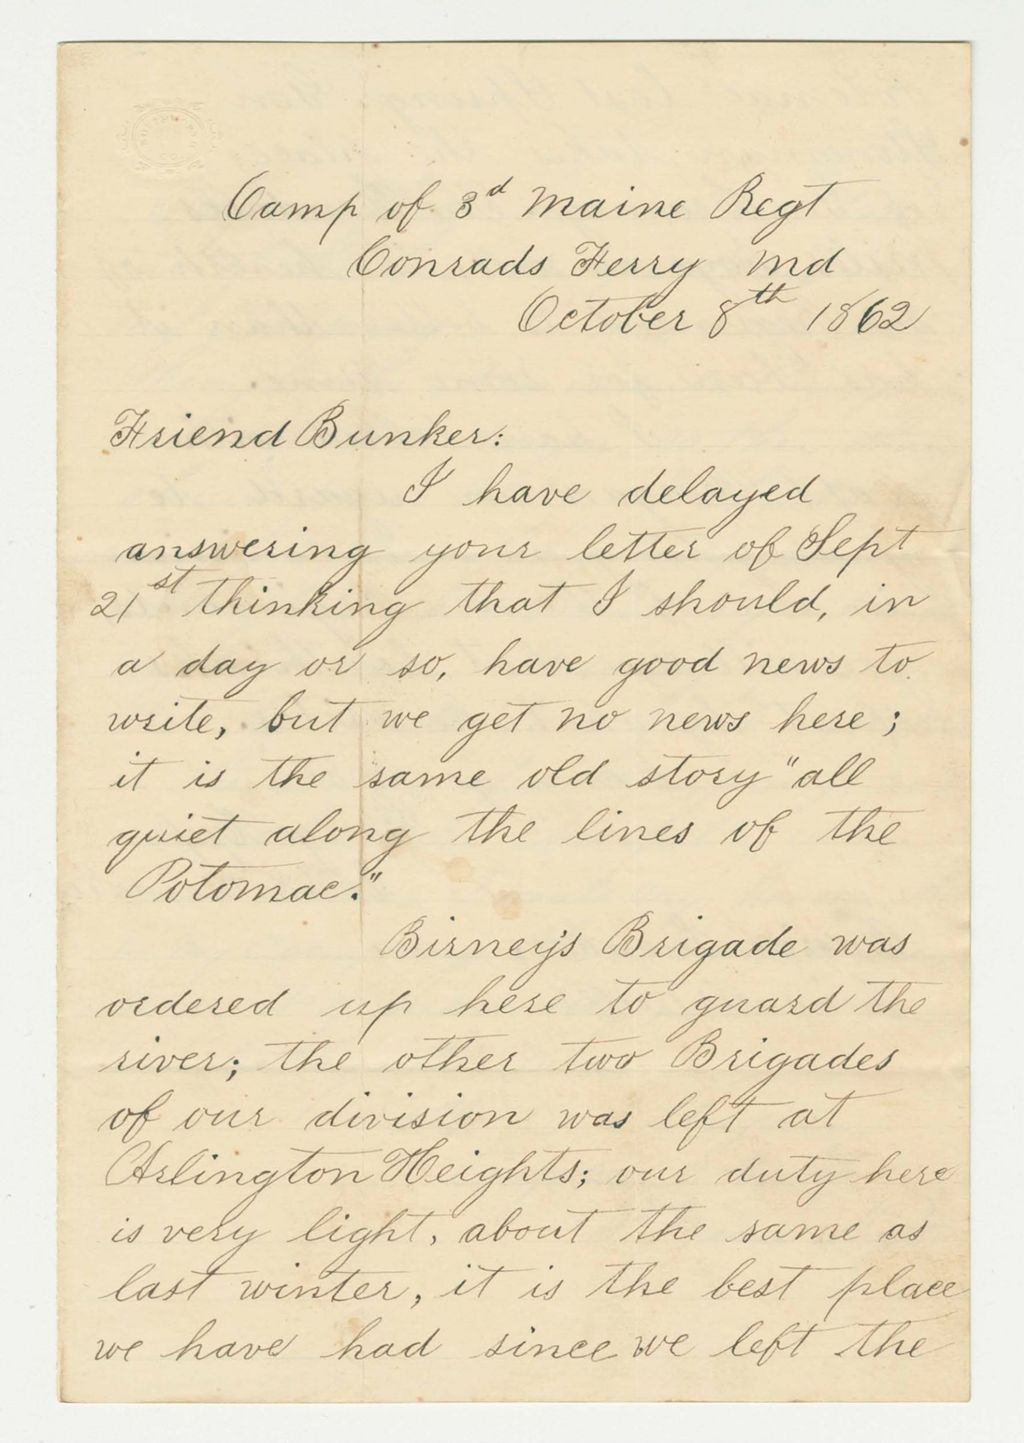 Camp of 3d Maine Regt
Conrads Ferry Md
October 8th 1862
Friend Bunker:
I have delayed
answering your letter of Sept
21st thinking that I should, in
a day or so, have good news to
write, but we get no news here;
it is the same old story "all
quiet along the lines of the
Potomac."
Birney's Brigade was
ordered up here to guard the
river; the other two Brigades
of our division was left at
Arlington Heights; our duty here
is very light, about the same as
last winter, it is the best place
we have had since we left the